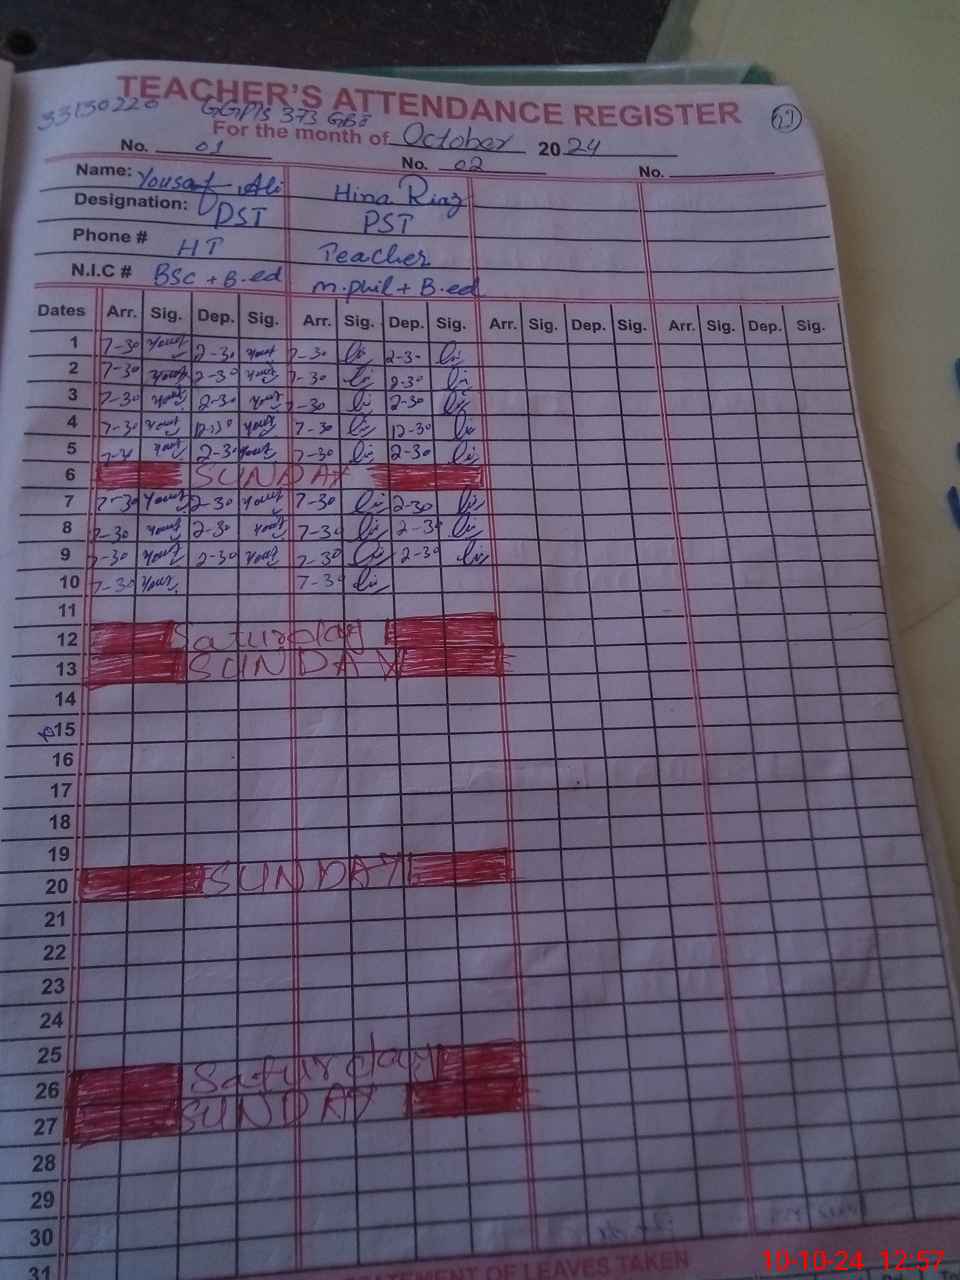 TEACHER'S ATTENDANCE REGISTER
33130220 GGPS 373 GB
For the month of October 2024
No. 01 No. 02 No.
Name: Yousaf Ali Hina Riaz
Designation: PST PST
Phone # HT Teacher
N.I.C # BSc + B.ed m.phil + B.ed
Dates Arr. Sig. Dep. Sig. Arr. Sig. Dep. Sig. Arr. Sig. Dep. Sig. Arr. Sig. Dep. Sig.
1 7-30 2-30 7-30 2-30
2 7-30 2-30 7-30 2-30
3 7-30 2-30 7-30 2-30
4 7-30 12-30 7-30 12-30
5 2-30 7-30 2-30
6 SUNDAY
7 7-30 2-30 7-30 2-30
8 7-30 2-30 7-30 2-30
9 7-30 2-30 7-30 2-30
10 7-30 7-30
11
12 Saturday
13 SUNDAY
14
15
16
17
18
19
20 SUNDAY
21
22
23
24
25
26 Saturday
27 SUNDAY
28
29
30
31
STATEMENT OF LEAVES TAKEN
10-10-24 12:57